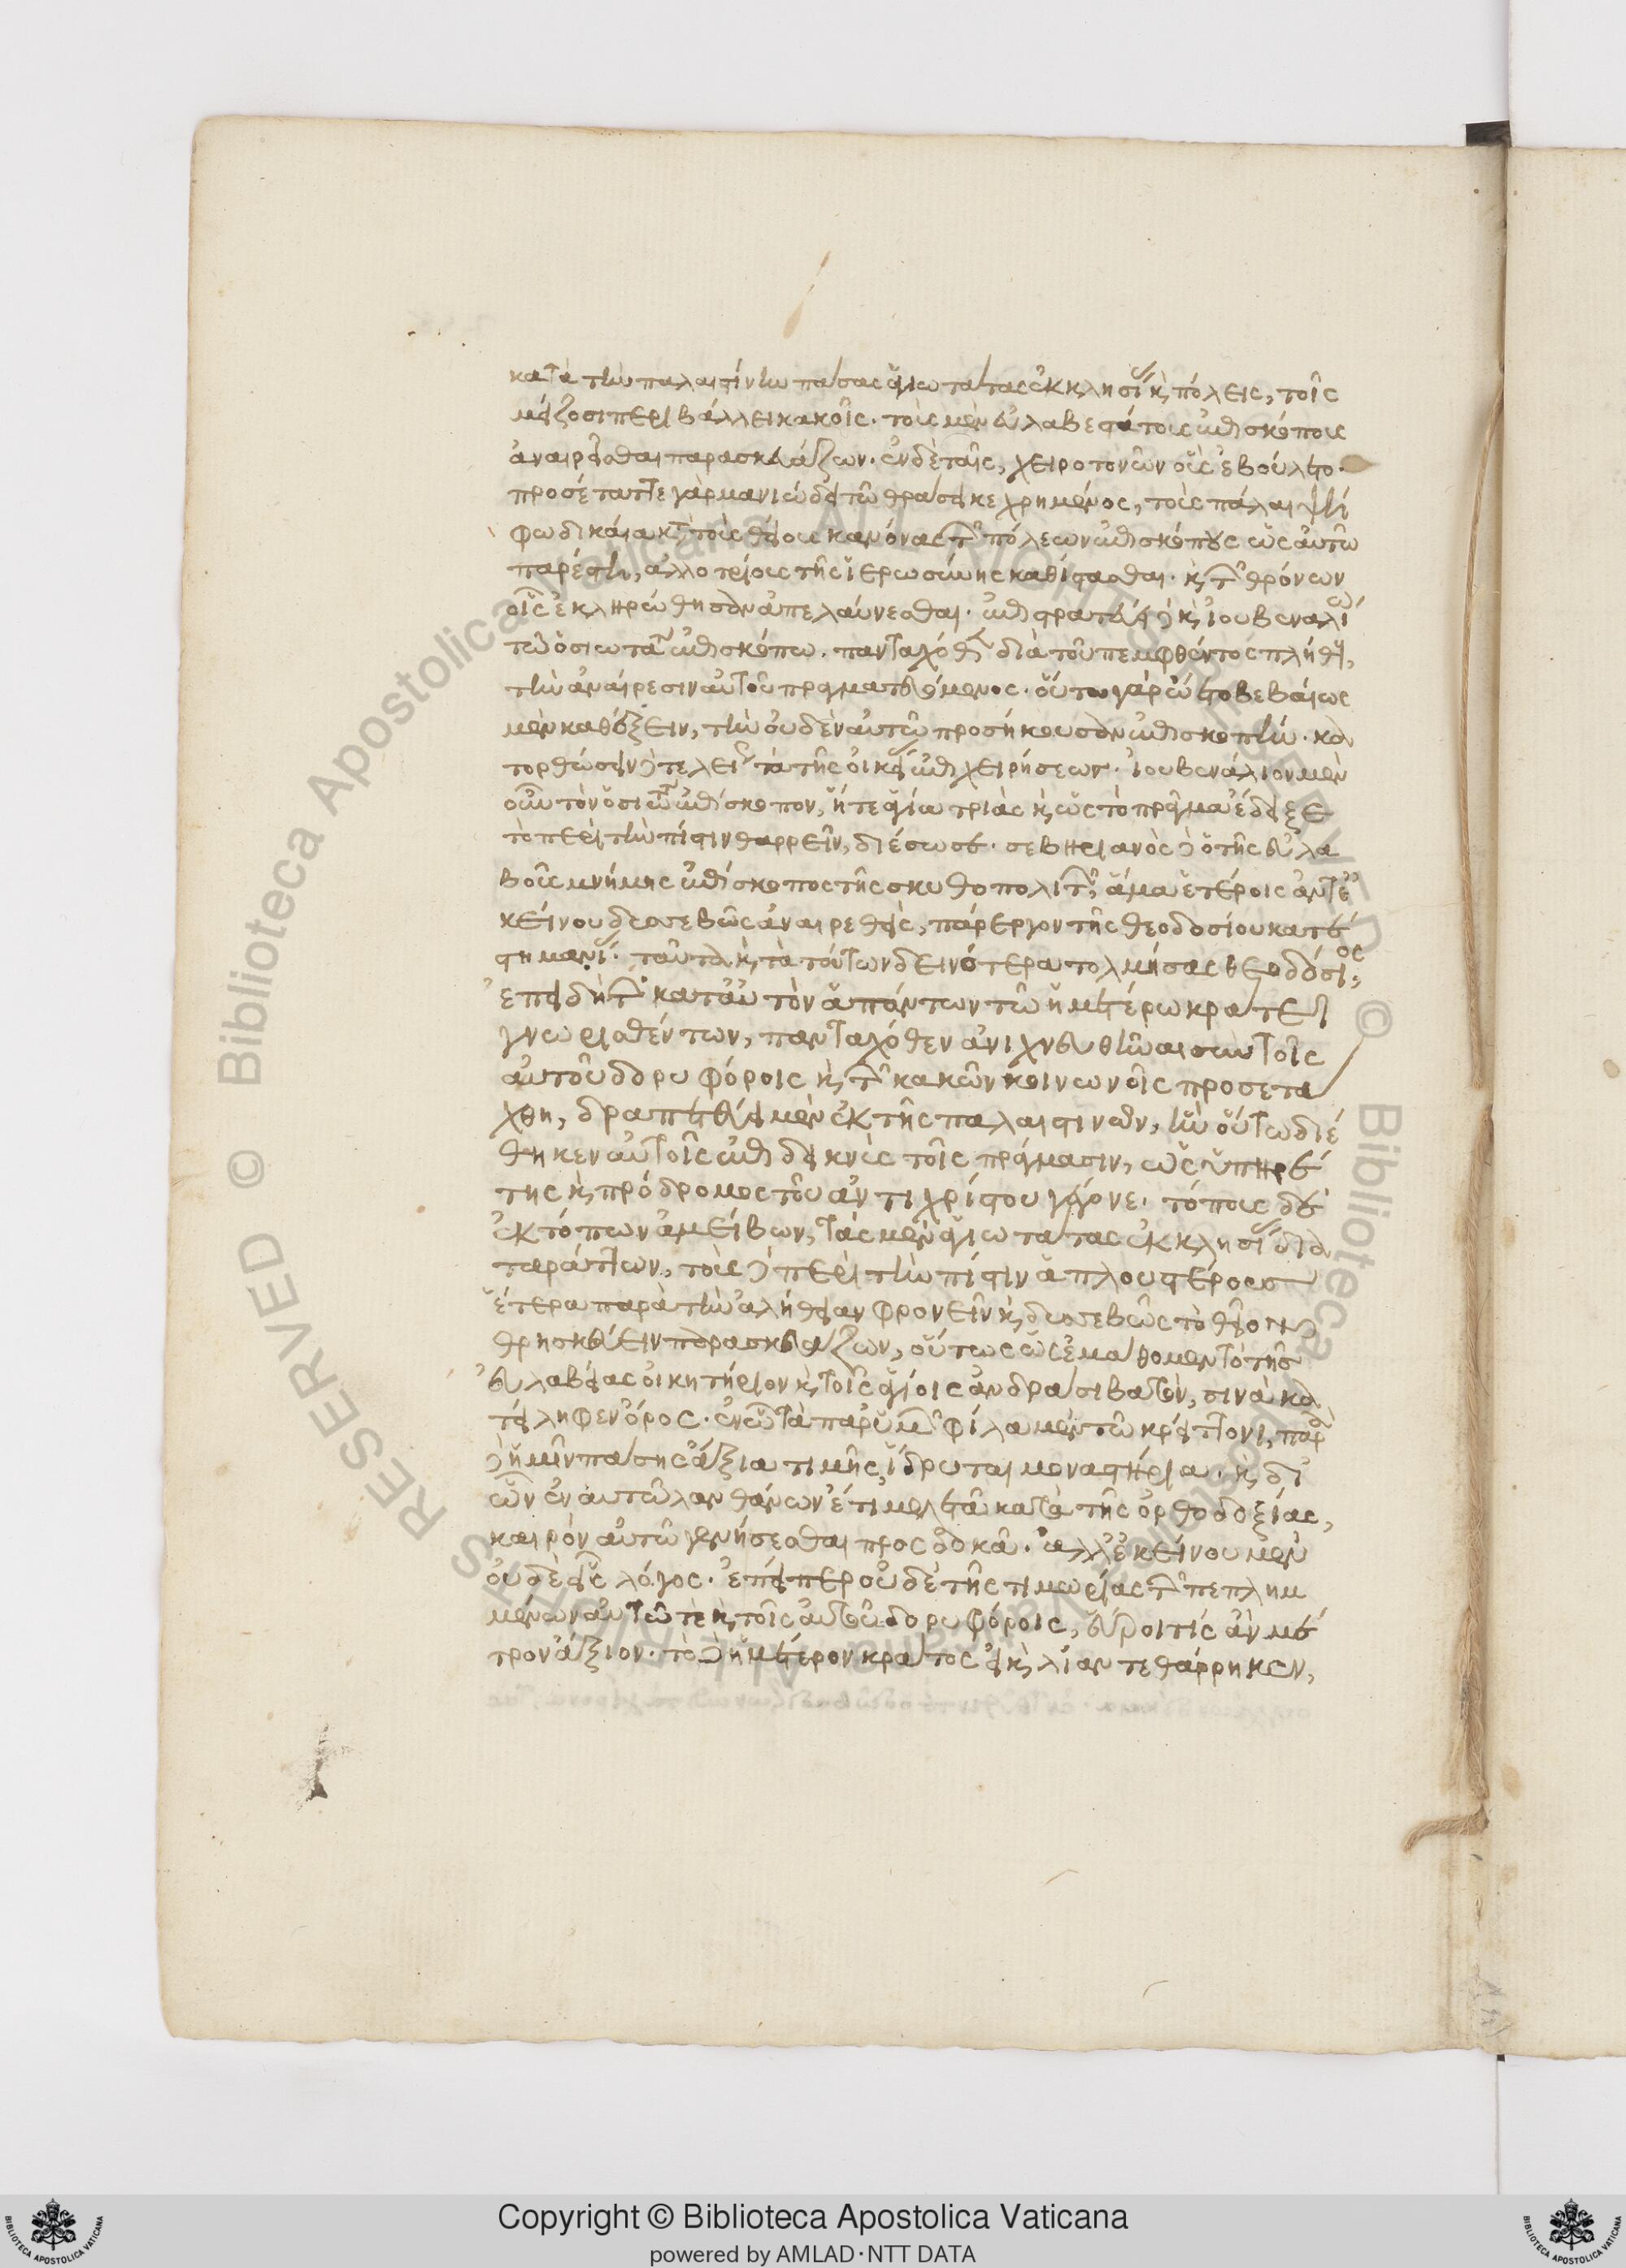 κατὰ τὴν παλαιστίνην πάσας ἁγιωτάτας ἐκκλησίας κ πόλεις, τοῖς
μείζοσι περιβάλλει κακοῖς. τοὺς μὲν εὐλαβεστάτους ἐπισκόπους
ἀναιρεῖσθαι παρασκευάζων. ἐν δὲ ταῖς, χειροτονῶν οὓς ἐβούλετο.
προσέταττε γὰρ μανιώδει τῶ θράσει κεχρημένος, τοὺς πάλαι ψή
φω δικαία κατὰ τοὺς θείους κανόνας τῶν πόλεων ἐπισκόπους ὡς αὐτῶ
παρέστη, ἀλλοτρίους τῆς ἱερωσύνης καθίστασθαι. κ τῶν θρόνων
οἷς ἐκληρώθησαν ἀπελαύνεσθαι. ἐπιστρατεύει δὲ κ ἰουβεναλίω
τῶ ὁσιωτάτω ἐπισκόπω. πανταχόθεν διὰ τοῦ πεμφθέντος πλήθους,
τὴν ἀναίρεσιν αὐτοῦ πραγματευόμενος. οὕτω γὰρ ὤετο βεβαίως
μὲν καθέξειν, τὴν οὐδὲν αὐτῶ προσήκουσαν ἐπισκοπήν. κα
τορθώσειν δὲ τελείως τὰ τῆς οἰκείας ἐπιχειρήσεως. ἰουβενάλιον μὲν
οὖν τὸν ὁσιώτατον ἐπίσκοπον, ἥ τε ἁγία τριὰς κ ὡς τὸ πρᾶγμα ἔδειξε
τὸ περὶ τὴν πίστιν θαρρεῖν, διέσωσε. σεβηριανὸς δὲ ὁ τῆς εὐλα
βοῦς μνήμης ἐπίσκοπος τῆς σκυθοπολιτῶν, ἅμα ἑτέροις ἀντ' ἐ
κείνου δυσσεβῶς ἀναιρεθεὶς, πάρεργον τῆς θεοδοσίου κατέ
στη μανίας. ταῦτα κ τὰ τούτων δεινότερα τολμήσας θεοδόσιος,
ἐπειδὴ τῶν κατ' αὐτὸν ἁπάντων τῶ ἡμετέρω κράτει
γνωρισθέντων, πανταχόθεν ἀνιχνευθῆναι σὺν τοῖς
αὐτοῦ δορυφόροις κ τῶν κακῶν κοινωνοῖς προσετά
χθη, δραπετεύει μὲν ἐκ τῆς παλαιστίνης, ἣν οὕτω διέ
θηκεν αὐτοῖς ἐπιδεικνὺς τοῖς πράγμασιν, ὡς ὑπηρέ
της κ πρόδρομος τοῦ ἀντιχρίστου γέγονε. τόπους δὲ
ἐκ τόπων ἀμείβων, τὰς μὲν ἁγιωτάτας ἐκκλησίας δια
ταράττων, τοὺς δὲ περὶ τὴν πίστιν ἁπλουστέρους
ἕτερα παρὰ τὴν ἀλήθειαν φρονεῖν κ δυσσεβῶς τὸ θεῖον
θρησκεύειν παρασκευάζων, οὕτως ὡς ἐμάθομεν τὸ τῆς
εὐλαβείας οἰκητήριον κ τοῖς ἁγίοις ἀνδράσι βατὸν, σινὰ κα
τείληφεν ὄρος. ἐν ὧ τὰ παρ' ὑμῶν φίλα μὲν τῶ κρείττονι, παρ'
δὲ ἡμῖν πάσης ἄξια τιμῆς, ἵδρυται μοναστήρια. κ δι'
ὧν ἐν αὐτῶ λανθάνων ἔτι μελετᾶ κατὰ τῆς ὀρθοδοξίας,
καιρὸν αὐτῶ γενήσεσθαι προσδοκᾶ. ἀλλ' ἐκείνου μὲν
οὐδεὶς λόγος. ἐπείπερ οὐδὲ τῆς τιμωρίας τῶν πεπλημ
μένων αὐτῶ τε κ τοῖς αὐτοῦ δορυφόροις, εὕροι τίς ἂν μέ
τρον ἄξιον. τὸ δὲ ἡμέτερον κράτος εἰ κ λίαν τεθάρρηκεν,